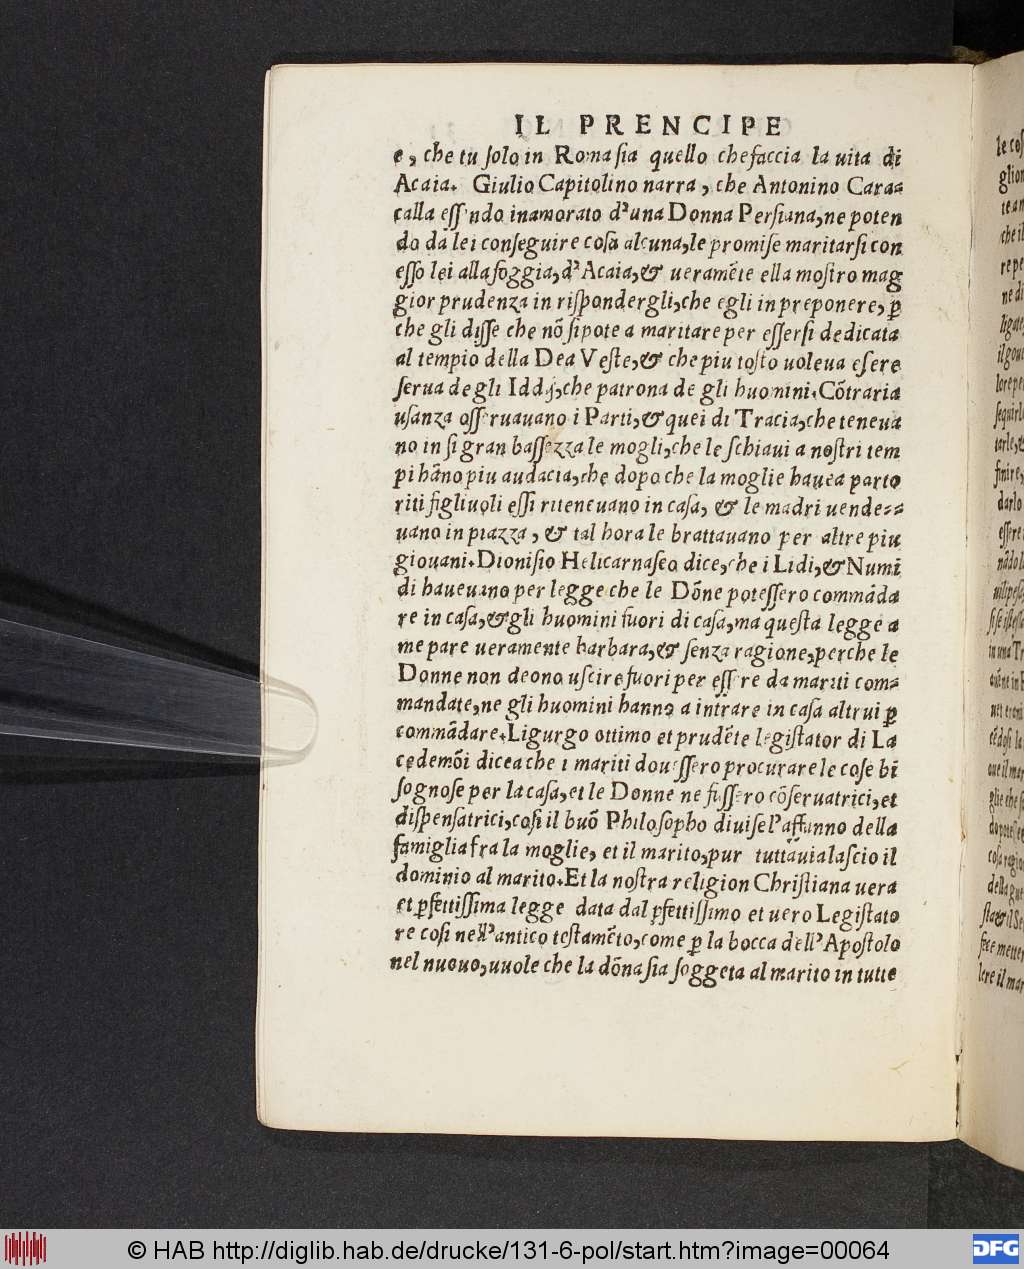 IL PRENCIPE
e, che tu ſolo in Roma ſia quello che faccia la uita di
Acaia. Giulio Capitolino narra, che Antonino Cara=
calla eſſendo inamorato d'una Donna Perſiana, ne poten
do da lei conſeguire coſa alcuna, le promiſe maritarſi con
eſſo lei alla foggia, d'Acaia, & ueramẽte ella moſtro mag
gior prudenza in riſpondergli, che egli in preponere, ꝑ
che gli diſſe che nõ ſi pote a maritare per eſſerſi dedicata
al tempio della Dea Veſte, & che piu toſto uoleua eſere
ſerua de gli Iddij, che patrona de gli huomini. Cõtraria
uſanza oſſeruauano i Parti, & quei di Tracia, che teneua
no in ſi gran baſſezza le mogli, che le ſchiaui a noſtri tem
pi hãno piu audacia, che dopo che la moglie hauea parto
riti figliuoli eſſi riteneuano in caſa, & le madri uende==
uano in piazza, & tal hora le brattauano per altre piu
giouani. Dioniſio Helicarnaſeo dice, che i Lidi, & Numĩ
di haueuano per legge che le Dõne poteſſero commãda
re in caſa, & gli huomini fuori di caſa, ma queſta legge a
me pare ueramente barbara, & ſenza ragione, perche le
Donne non deono uſcire fuori per eſſere da mariti com=
mandate, ne gli huomini hanno a intrare in caſa altrui ꝑ
commãdare. Ligurgo ottimo et prudẽte legiſtator di La
cedemõi dicea che i mariti doueſſero procurare le coſe bĩ
ſognoſe per la caſa, et le Donne ne fuſſero cõſeruatrici, et
diſpenſatrici, coſi il buõ Philoſopho diuiſe l'affanno della
famiglia fra la moglie, et il marito, pur tuttauia laſcio il
dominio al marito. Et la noſtra religion Chriſtiana uera
et ꝑfettiſſima legge data dal ꝑfettiſſimo et uero Legiſtato
re coſi nell'antico teſtamẽto, come ꝑ la bocca dell'Apoſtolo
nel nuouo, uuole che la dõna ſia ſoggeta al marito in tutte
le coſ
glion
te an
che il
re pe
ne di
ligate
il gou
lor e pe
ſequirl
tarle, &
finire,
darlo
eſſere
nãdo l
della gu
ſece metter
lere il mar
© HAB http://diglib.hab.de/drucke/131-6-pol/start.htm?image=00064
DFG